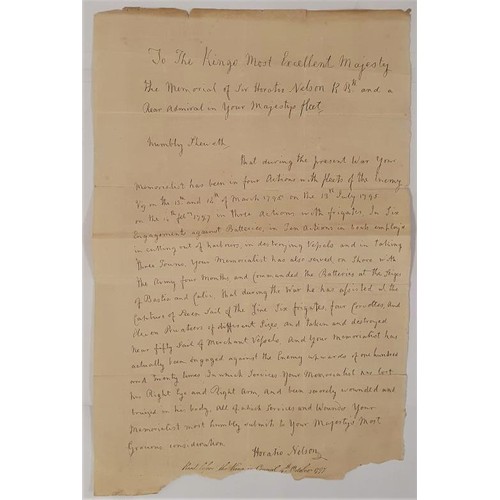 To The Kings Most Excellent Majesty
The Memorial of Sir Horatio Nelson K B and a
Rear Admiral in Your Majestys fleet
Humbly Sheweth
That during the present War Your
Memorialist has been in four Actions with fleets of the Enemy
Viz on the 13th and 14th of March 1795 on the 13th July 1795
on the 14th feby 1797 in three Actions with frigates In Six
Engagements against Batteries, in Ten Actions in boats employ'd
in cutting out of harbours, in destroying Vessels and in Taking
Three Towns, Your Memorialist has also served on Shore with
the Army four Months and Commanded the Batteries at the Sieges
of Bastia and Calvi That during the War he has assisted at the
Capture of Seven Sail of the Line Six frigates, four Corvettes, and
Eleven Privateers of different Sizes, and taken and destroyed
near fifty Sail of Merchant Vessels, And Your Memorialist has
actually been engaged against the Enemy upwards of one hundred
and Twenty times In which Services Your Memorialist has lost
his Right Eye and Right Arm, and been severely wounded and
bruised in his body. All of which Services and Wounds Your
Memorialist most humbly submits to Your Majestys Most
Gracious consideration
Horatio Nelson
October 1797